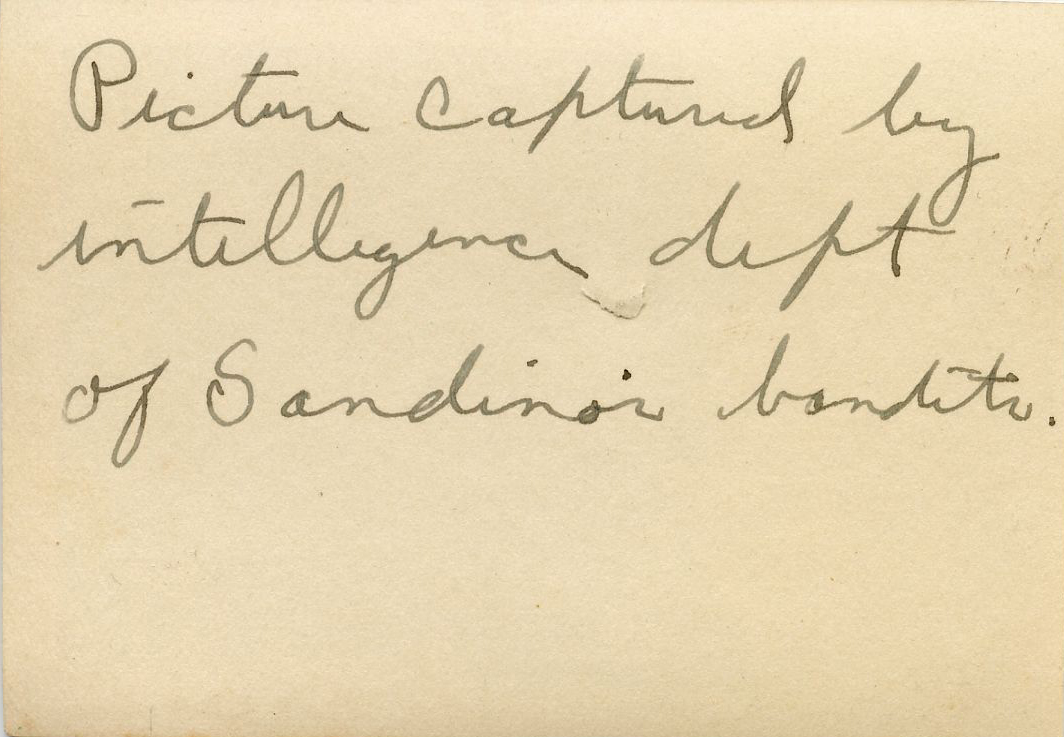 Picture captured by
intelligence dept
of Sandino's bandits.